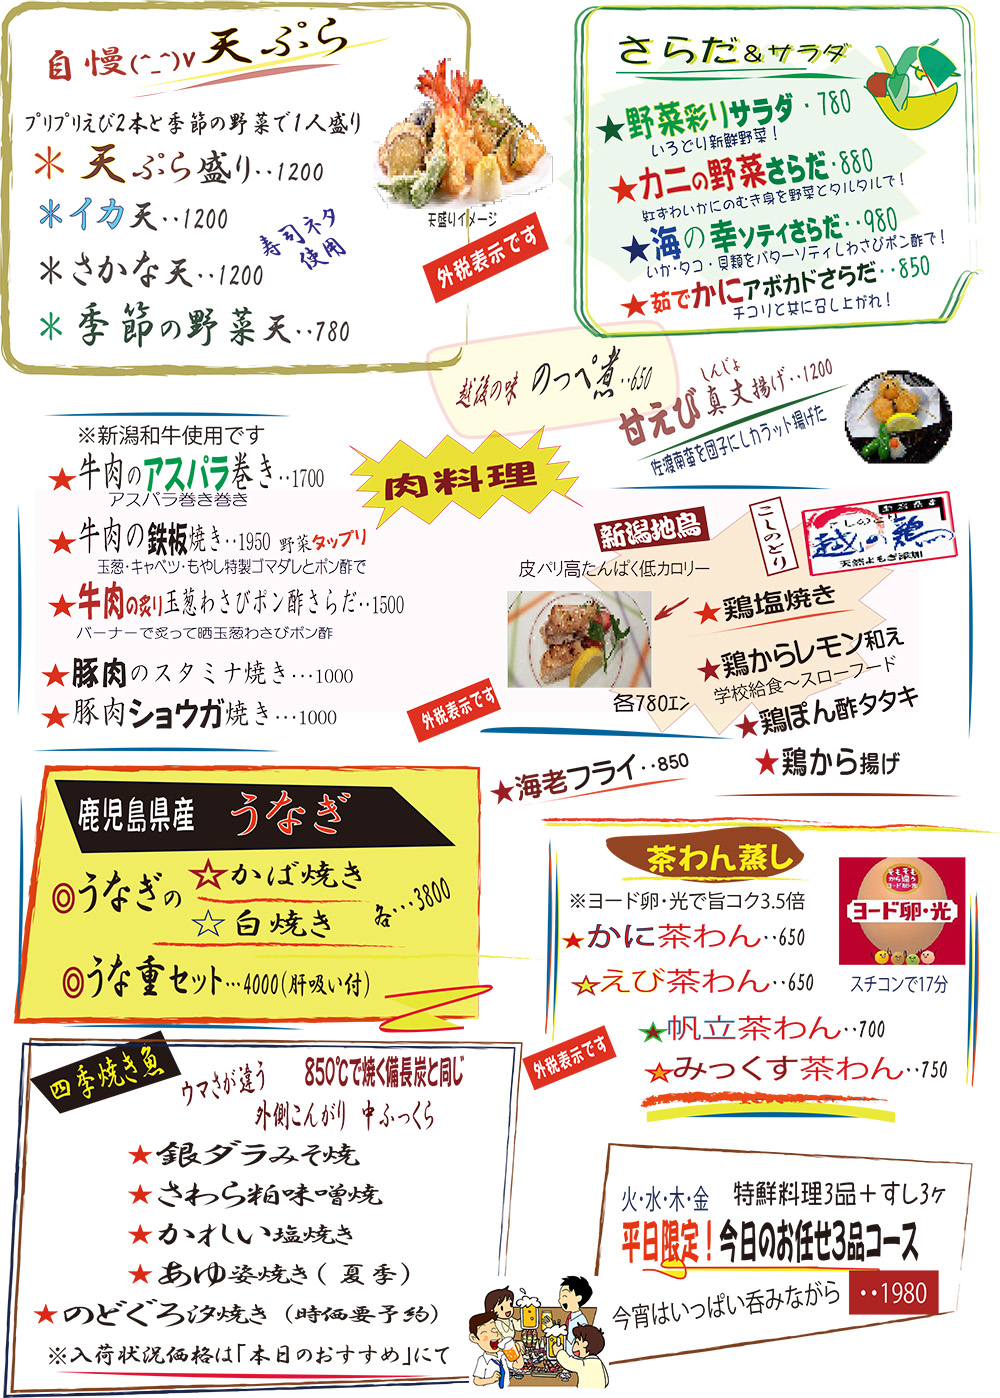 自慢(^_^)v 天ぷら
プリプリえび2本と季節の野菜で1人盛り
＊天ぷら盛り‥1200
＊イカ天‥1200
＊さかな天‥1200
寿司ネタ
使用
＊季節の野菜天‥780
天盛りイメージ
外税表示です
さらだ&サラダ
★野菜彩りサラダ・780
いろどり新鮮野菜！
★カニの野菜さらだ・880
紅ずわいかにのむき身を野菜とタルタルで！
★海の幸ソティさらだ‥980
いか・タコ・貝類をバターソティしわさびポン酢で！
★茹でかにアボカドさらだ‥850
チコリと共に召し上がれ！
越後の味 のっぺ煮‥650
しんじょ
甘えび真丈揚げ‥1200
佐渡南蛮を団子にしカラット揚げた
肉料理
※新潟和牛使用です
★牛肉のアスパラ巻き‥1700
アスパラ巻き巻き
★牛肉の鉄板焼き‥1950 野菜タップリ
玉葱・キャベツ・もやし特製ゴマダレとポン酢で
★牛肉の炙り玉葱わさびポン酢さらだ‥1500
バーナーで炙って晒玉葱わさびポン酢
★豚肉のスタミナ焼き…1000
★豚肉ショウガ焼き…1000
外税表示です
新潟地鳥
こしのとり
こしのとり
越の鶏
天然よもぎ添加
皮パリ高たんぱく低カロリー
★鶏塩焼き
★鶏からレモン和え
学校給食～スローフード
各780ｴﾝ
★鶏ぽん酢タタキ
★鶏から揚げ
★海老フライ‥850
鹿児島県産 うなぎ
◎うなぎの
☆かば焼き
☆白焼き
各…3800
◎うな重セット…4000(肝吸い付)
茶わん蒸し
※ヨード卵・光で旨コク3.5倍
★かに茶わん‥650
★えび茶わん‥650
★帆立茶わん‥700
★みっくす茶わん‥750
そもそも
から違う
ヨード卵・光
ヨード卵・光
スチコンで17分
外税表示です
四季焼き魚
ウマさが違う 850℃で焼く備長炭と同じ
外側こんがり 中ふっくら
★銀ダラみそ焼
★さわら粕味噌焼
★かれい塩焼き
★あゆ姿焼き(夏季)
★のどぐろ汐焼き (時価要予約)
※入荷状況価格は「本日のおすすめ」にて
火・水・木・金 特鮮料理3品＋すし3ヶ
平日限定！今日のお任せ3品コース
今宵はいっぱい呑みながら ‥1980